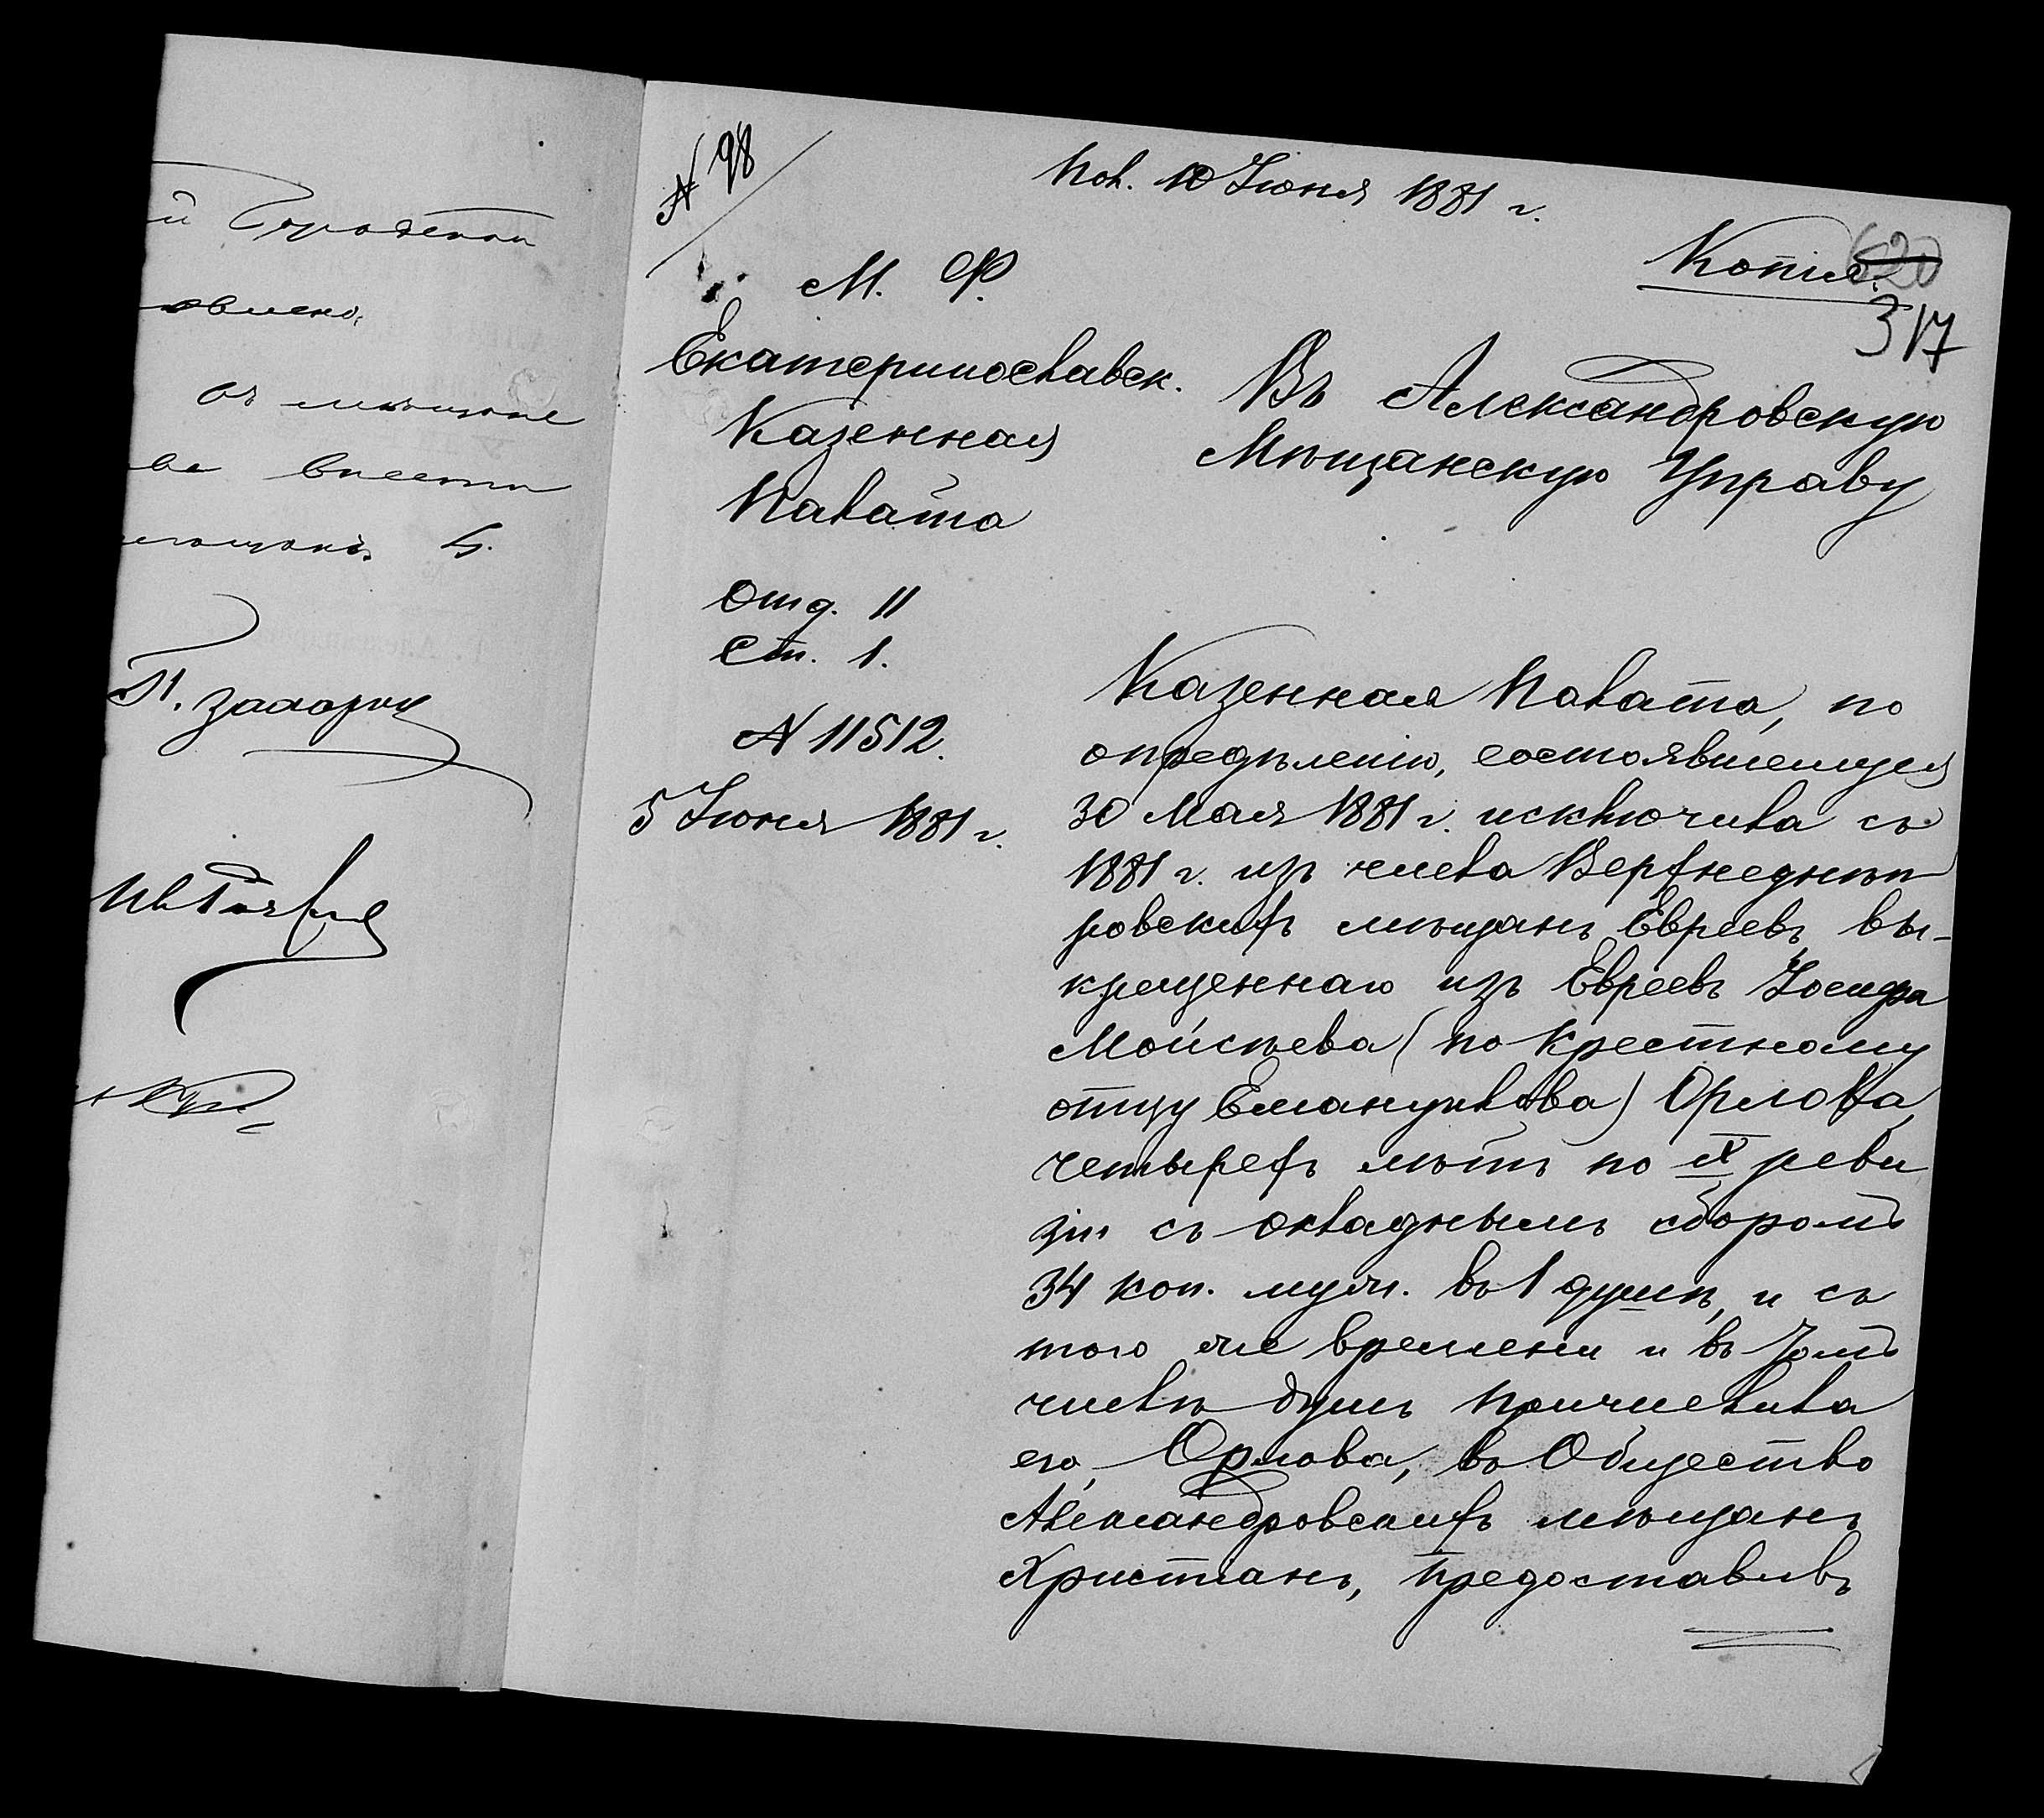 й Городской
овлено,
мѣщане
внести
П. Зааорни
№ 98
Пол. 10 Іюня 1881 г.
Копія.
620
317
М. Ф.
Екатеринославск.
Казенная
Палата
Отд. II
Ст. 1.
№ 11512.
5 Іюня 1881 г.
Въ Александровскую
Мѣщанскую Управу
Казенная Палата, по
опредѣленію, состоявшемуся
30 Мая 1881 г. исключила съ
1881 г. изъ числа Верхнеднѣп
ровскихъ мѣщанъ Евреевъ, вы-
крещеннаго изъ Евреевъ Іосифа
Моисѣева (по крестному
отцу Емануилова) Орлова,
четырехъ лѣтъ по IX реви
зіи съ окладнымъ сборомъ
34 коп. муж. въ 1 душѣ, и съ
того же времени и въ томъ
числѣ душъ причислила
его, Орлова, въ Общество
Александровскихъ мѣщанъ
Христіанъ, предоставивъ